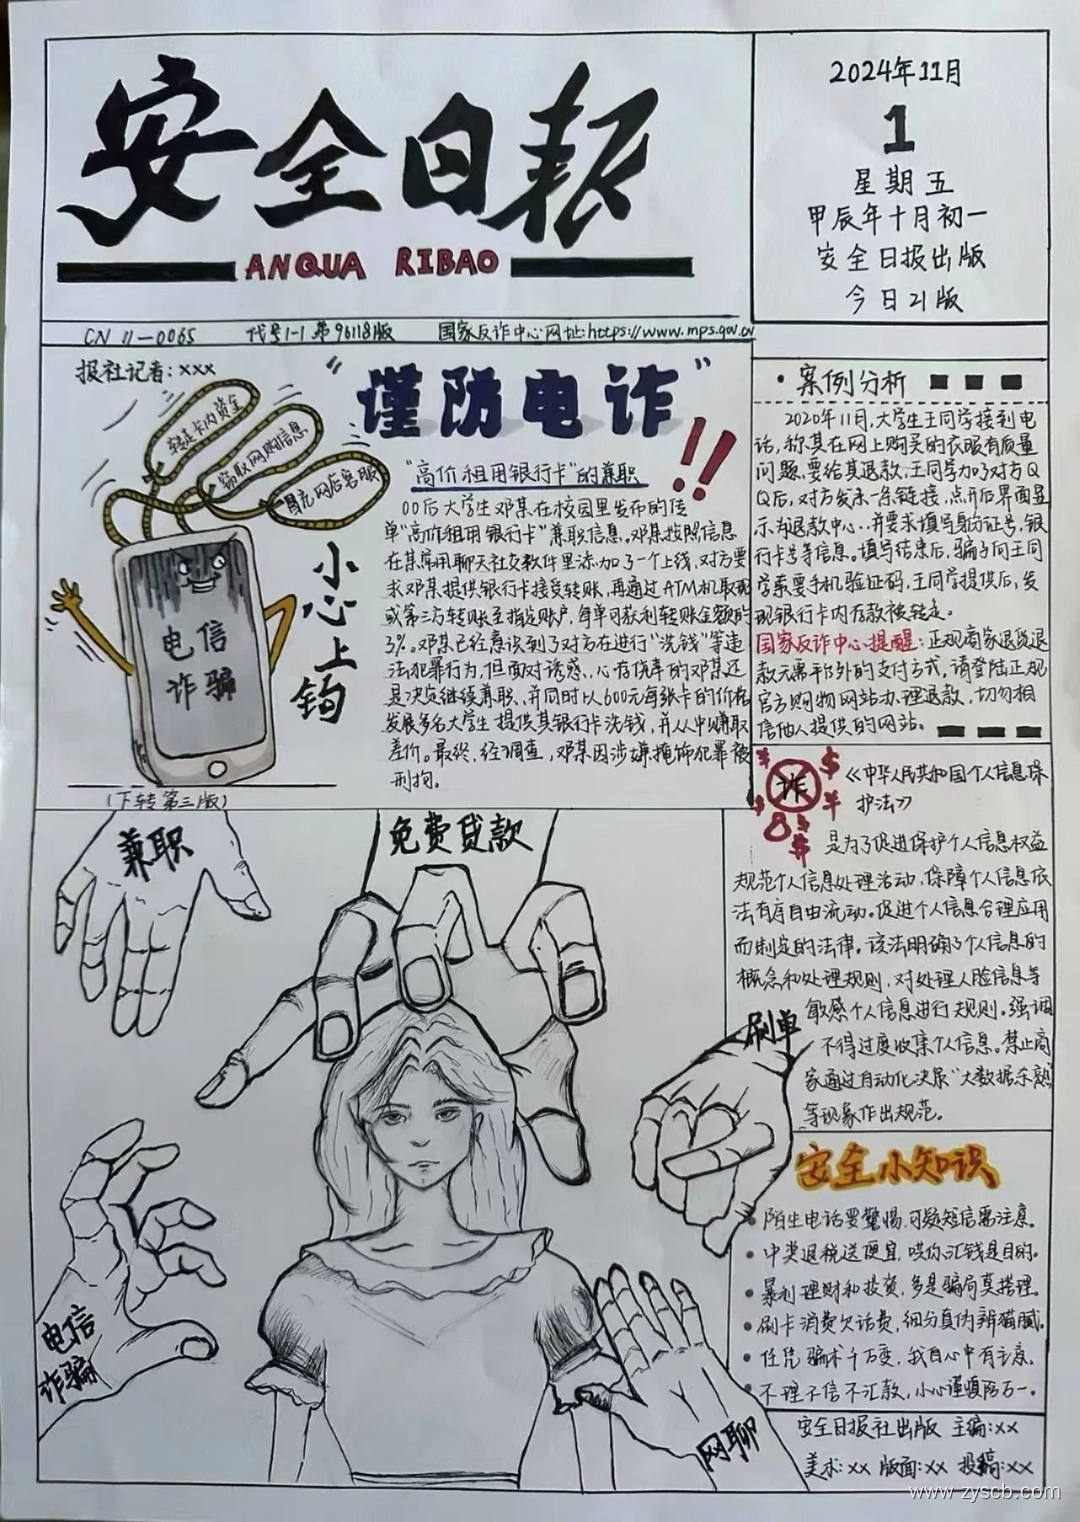 安全日报
ANQUA RIBAO
2024年11月
1
星期五
甲辰年十月初一
安全日报出版
今日21版
CN 11-0065 代号1-1 第96118版 国家反诈中心网址:https://www.mps.gov.cn
报社记者:×××
转走卡内资金
窃取网购信息
冒充网店客服
电信
诈骗
小心上钩
(下转第三版)
“谨防电诈”!!
“高价租用银行卡”的兼职
00后大学生邓某在校园里发布的传
单“高价租用银行卡”兼职信息。邓某按照信息
在某常用聊天社交软件里添加了一个上线,对方要
求邓某提供银行卡接受转账,再通过ATM机取现
或第三方转账至指定账户,每单可获利转账金额的
3%。邓某已经意识到了对方在进行“洗钱”等违
法犯罪行为,但面对诱惑、心存侥幸的邓某还
是决定继续兼职、并同时以600元每张卡的价格
发展多名大学生提供其银行卡洗钱,并从中赚取
差价。最终,经调查,邓某因涉嫌掩饰犯罪被
刑拘。
·案例分析
2020年11月,大学生王同学接到电
话,称某在网上购买的衣服有质量
问题,要给其退款,王同学加了对方Q
Q后,对方发来一条链接,点开后界面显
示为退款中心,并要求填写身份证号、银
行卡号等信息。填写结束后,骗子向王同
学索要手机验证码,王同学提供后,发
现银行卡内存款被转走。
国家反诈中心提醒:正规商家退货退
款无需平台外的支付方式,请登陆正规
官方购物网站办理退款,切勿相
信他人提供的网站。
诈
《中华人民共和国个人信息保
护法》
是为了促进保护个人信息权益
规范个人信息处理活动,保障个人信息依
法有序自由流动。促进个人信息合理应用
而制定的法律。该法明确了个人信息的
概念和处理规则,对处理人脸信息等
敏感个人信息进行规则。强调
不得过度收集个人信息。禁止商
家通过自动化决策“大数据杀熟”
等现象作出规范。
兼职
免费贷款
刷单
电信
诈骗
网聊
安全小知识
•陌生电话要警惕,可疑短信需注意。
•中奖退税送便宜,哄你汇钱是目的。
•暴利理财和投资,多是骗局莫搭理。
•刷卡消费欠话费,细分真伪辨猫腻。
•任凭骗术千万变,我自心中有主意。
•不理不信不汇款,小心谨慎防万一。
安全日报社出版 主编:××
美术:×× 版面:×× 投稿:××
www.zyscb.com